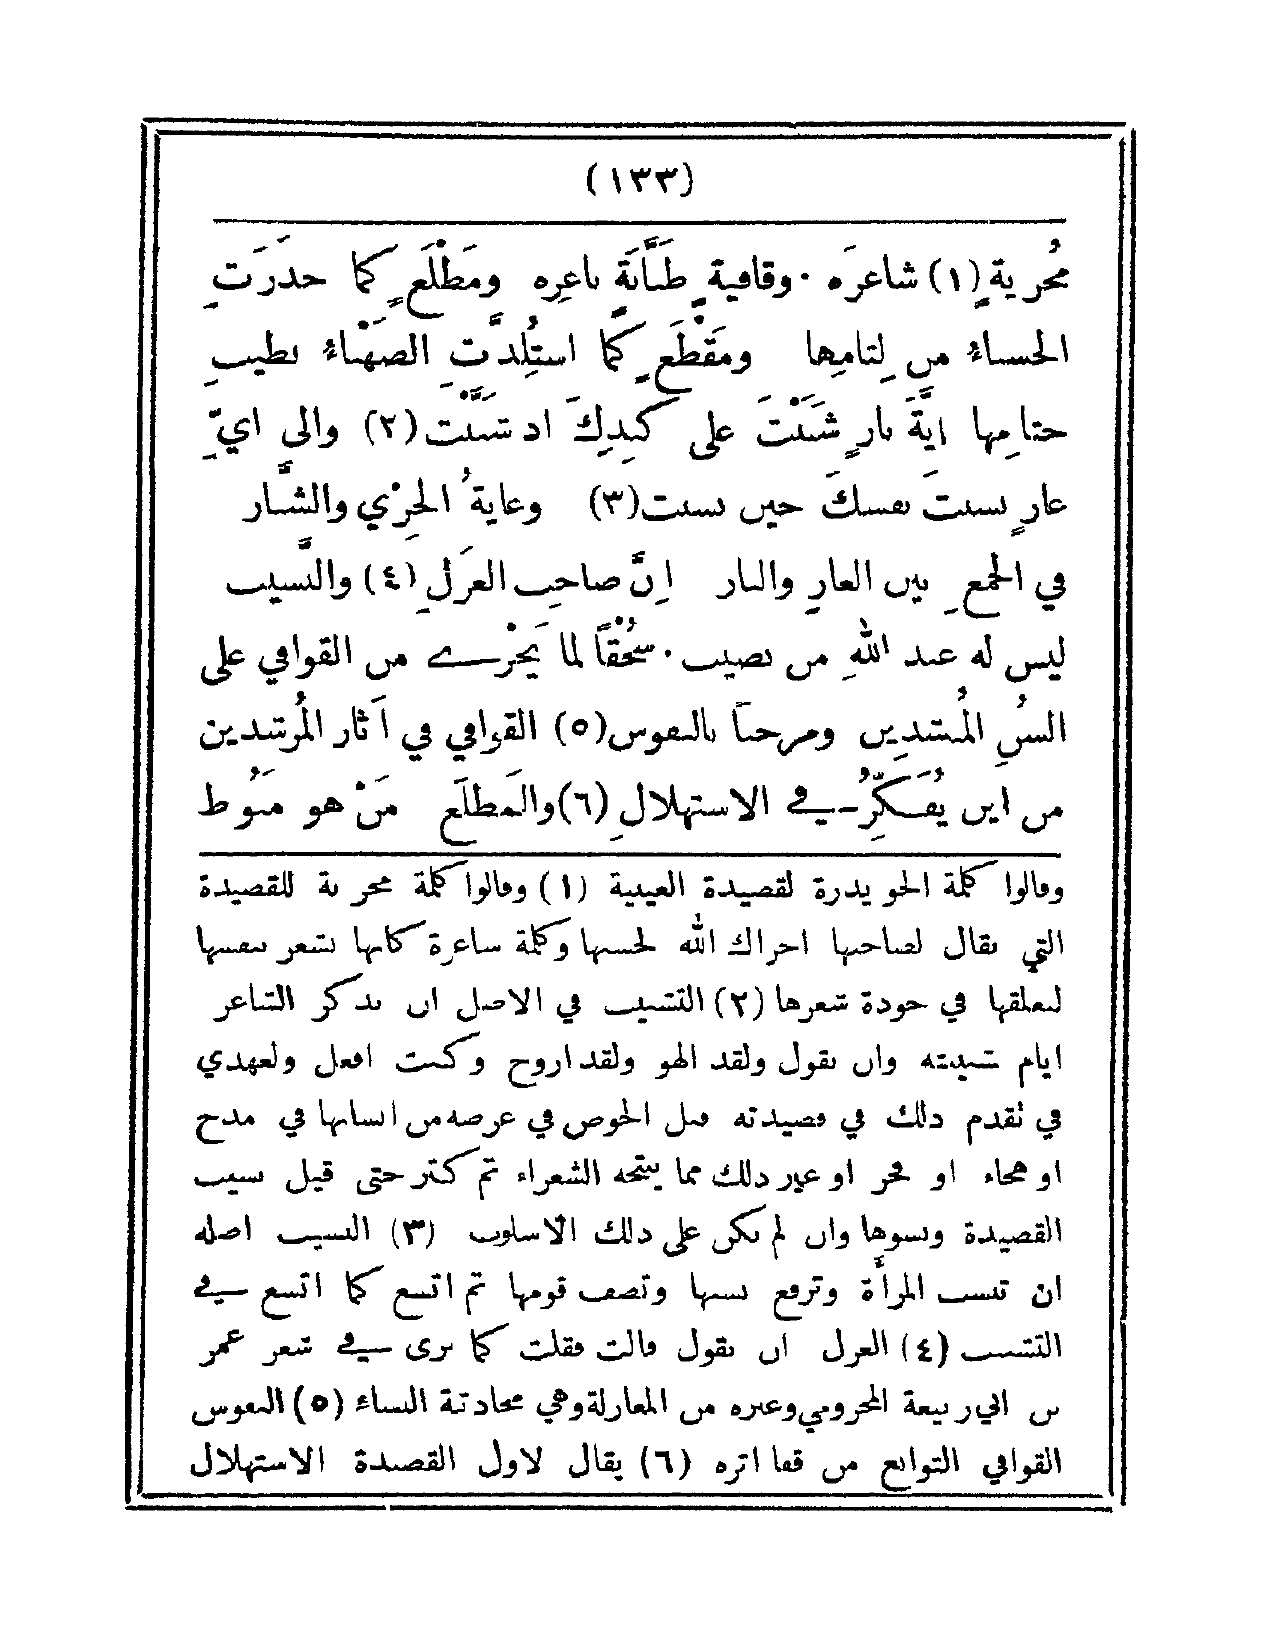 (١٣٣)
مُخْزِيةٍ(١) شاعرَه . وقافيةٍ طنَّانَةٍ ناعِره ومَطْلَعٍ كما حدَرَتِ
الحسناءُ من لِثامِها ومَقْطَعٍ كما استُلِذَّتِ الصهْباءُ بطيبِ
ختامِها ايَّةَ نارٍ شَبَبْتَ على كَبِدِكَ اذ شَبَّبْتَ(٢) والى ايّ
عارٍ نسبتَ نفسكَ حين نسبت(٣) وغايةُ الخِزْي والشَّنار
في الجمعِ بين العارِ والنار اِنَّ صاحِبَ الغزَلِ(٤) والنَّسيب
ليس له عند اللهِ من نصيب . سُحْقًا لما يَجْرى من القوافي على
السُنِ المُنشدِين ومرحباً بالنعوس(٥) القوافي في آثار المُرشدين
من اين يُفَكِّرُ في الاستهلالِ(٦) والمَطلَعِ مَنْ هو مَنُوط
وقالوا كلمة الحويدرة لقصيدة العينية (١) وقالوا كلمة مخزية للقصيدة
التي يقال لصاحبها اخزاك الله لحسنها وكلمة شاعرة كانها تشعر بنفسها
لتعلقها في جودة شعرها (٢) التشبيب في الاصل ان يذكر الشاعر
ايام شبيبته وان يقول ولقد الهو ولقد اروح وكنت افعل ولعهدي
في تقدم ذلك في قصيدته قبل الخوض في غرضه من انشائها في مدح
او هجاء او فخر او غير ذلك مما ينتجه الشعراء ثم كثر حتى قيل نسيب
القصيدة ونسبوها وان لم يكن على ذلك الاسلوب (٣) النسيب اصله
ان تنسب المرأة وترفع نسبها وتصف قومها ثم اتسع كما اتسع في
التشبيب (٤) الغزل ان يقول قالت فقلت كما ترى في شعر عمر
بن ابي ربيعة المخزومي وغيره من المغازلة وهي محادثة النساء (٥) النعوس
القوافي التوابع من قفا اثره (٦) يقال لاول القصيدة الاستهلال